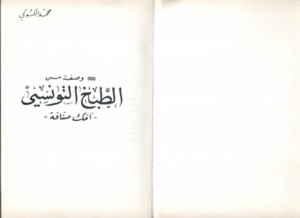 محمد الكشوي
500 وصفة من
الطبخ التونسي
« أمك صنافة »